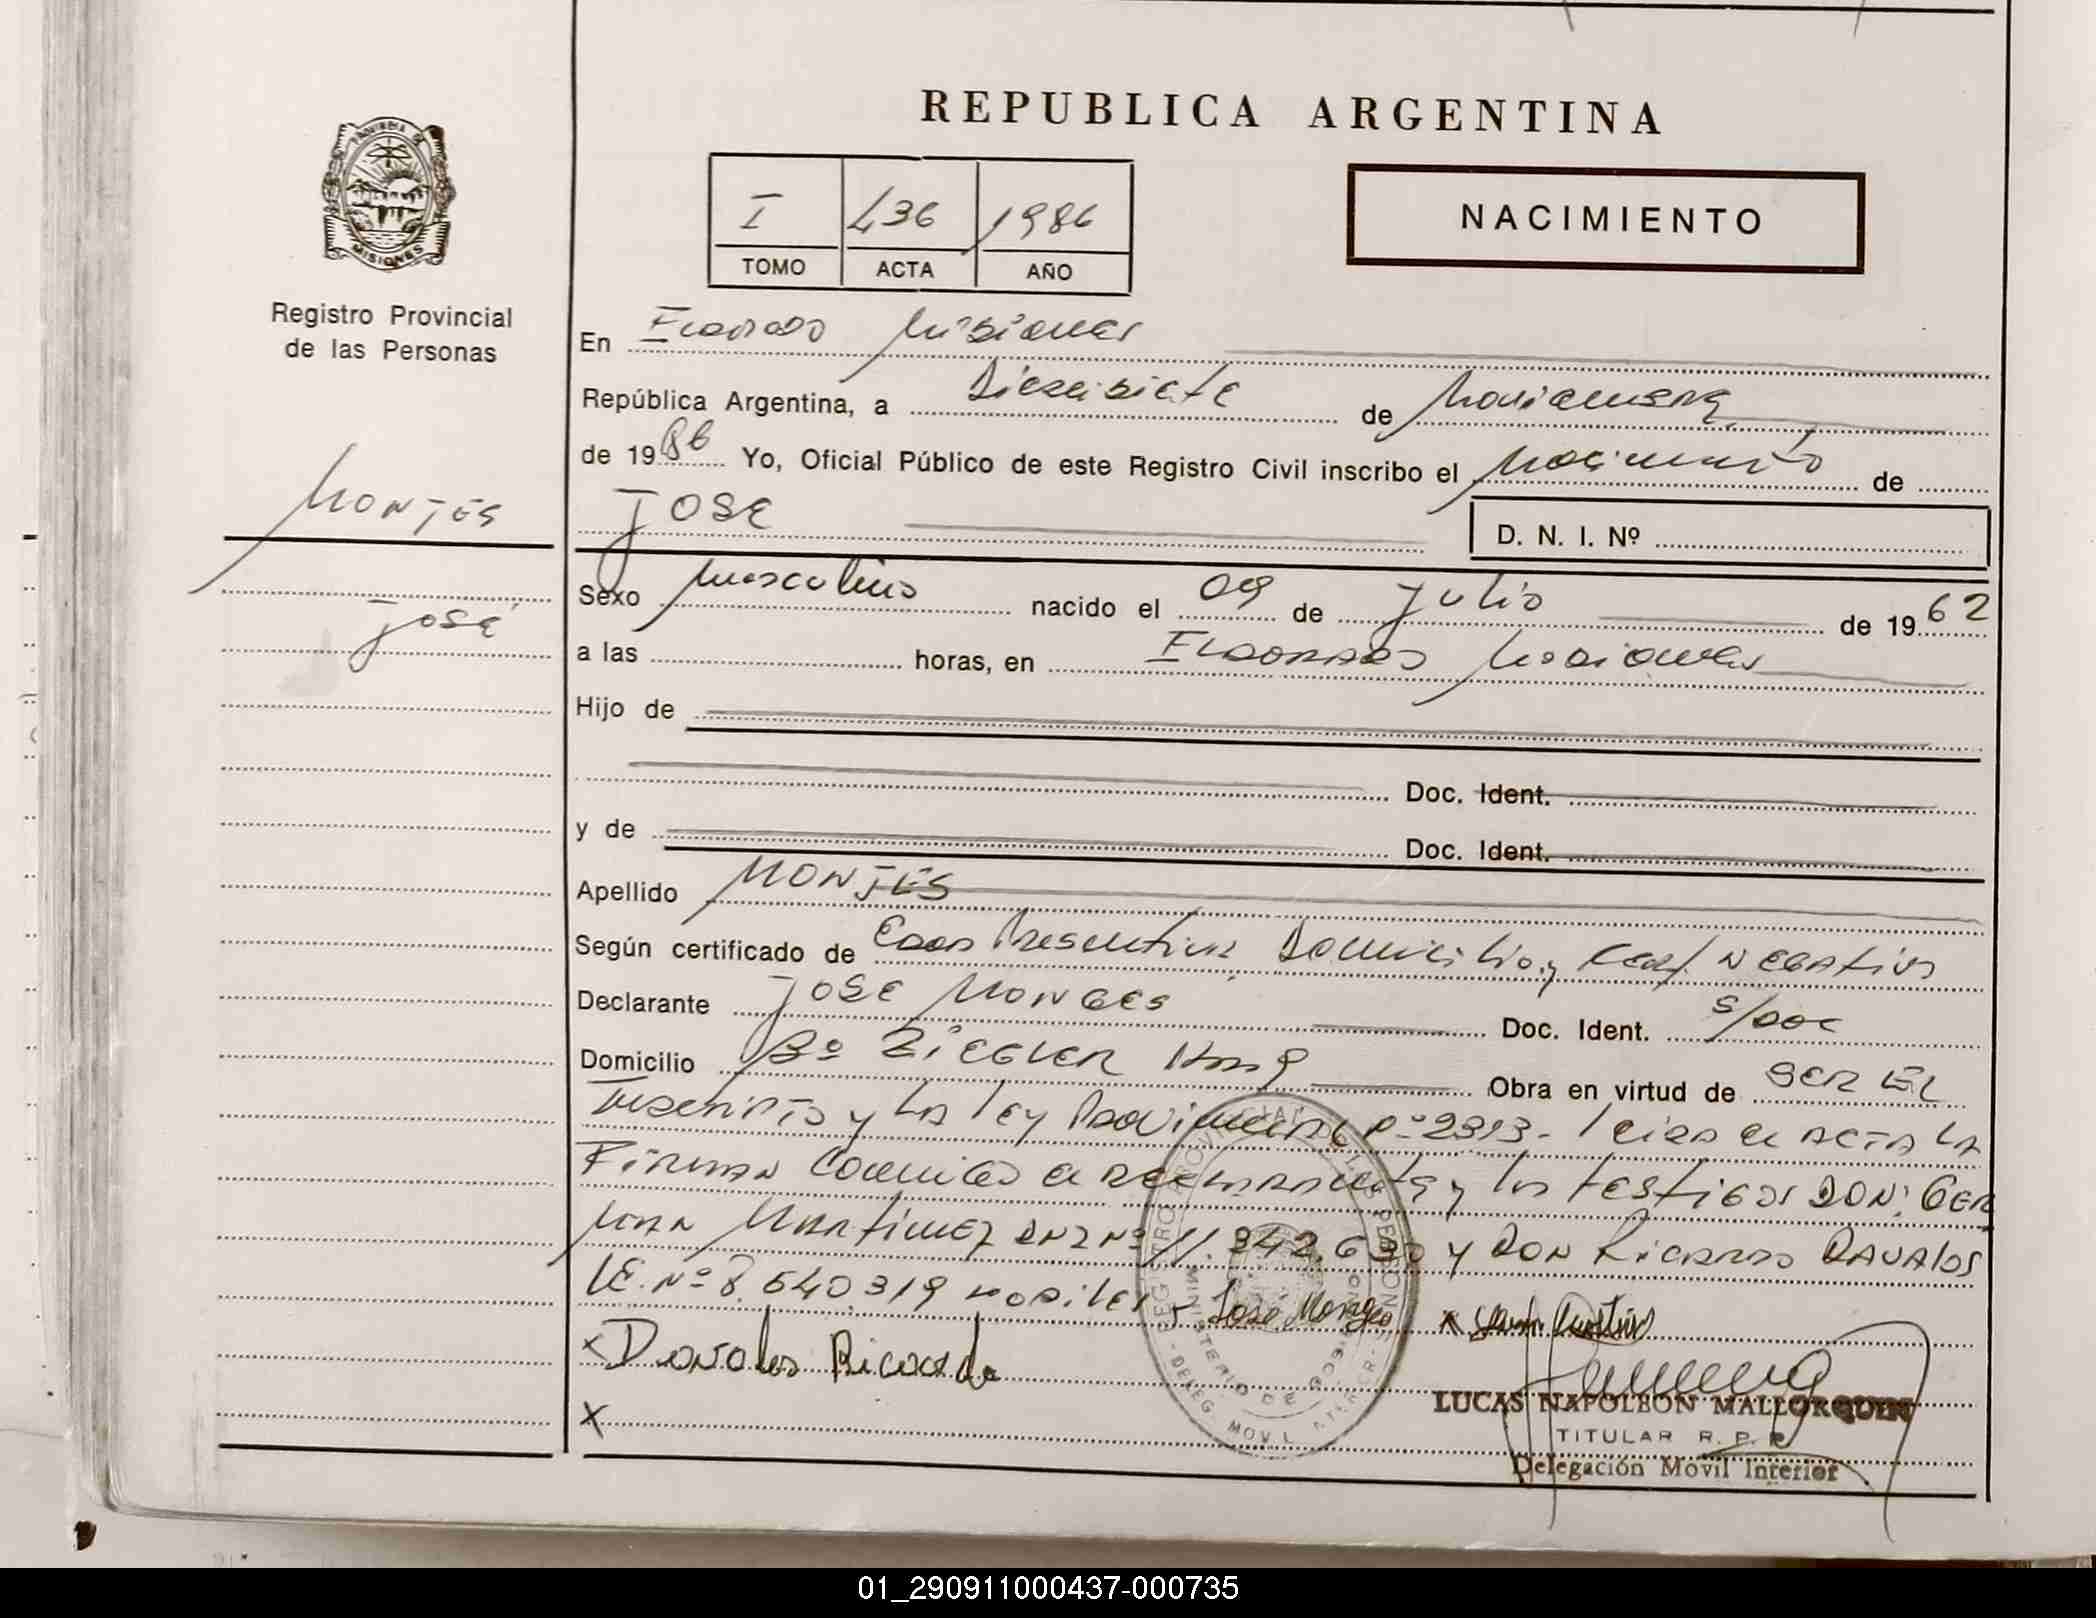 REPUBLICA ARGENTINA
PROVINCIA DE MISIONES
Registro Provincial
de las Personas
I 436 1986
TOMO ACTA AÑO
NACIMIENTO
En Eldorado Misiones
República Argentina, a Diecisiete de Noviembre
de 1986 Yo, Oficial Público de este Registro Civil inscribo el Nacimiento de
JOSE D. N. I. Nº
MONJES
José
Sexo Masculino nacido el 09 de Julio de 1962
a las horas, en Eldorado Misiones
Hijo de
Doc. Ident.
y de Doc. Ident.
Apellido MONJES
Según certificado de Edad Presuntiva, Domicilio y Cert. Negativo
Declarante JOSE MONGES Doc. Ident. S/DOC
Domicilio Bº ZIEGLER Obra en virtud de SER EL
Inscripto y la ley Provincial nº 2313 - leida el ACTA LA
Firman conmigo el declarante y los testigos DON: GER
MAN Martinez DNI Nº 11.342.630 y DON Ricardo DAVALOS
LE. Nº 8.540.319 José Monges
x Davalos Ricardo
x
REGISTRO PROVINCIAL DE LAS PERSONAS
MINISTERIO DE GOBIERNO
DELEG. MOVIL
LUCAS NAPOLEON MALLORQUIN
TITULAR R. P. P.
Delegación Movil Interior
01_290911000437-000735